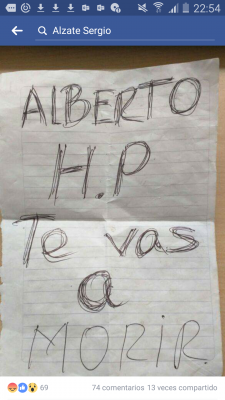 22:54
Alzate Sergio
ALBERTO
H.P
Te vas
a
MORIR
69
74 comentarios 13 veces compartido